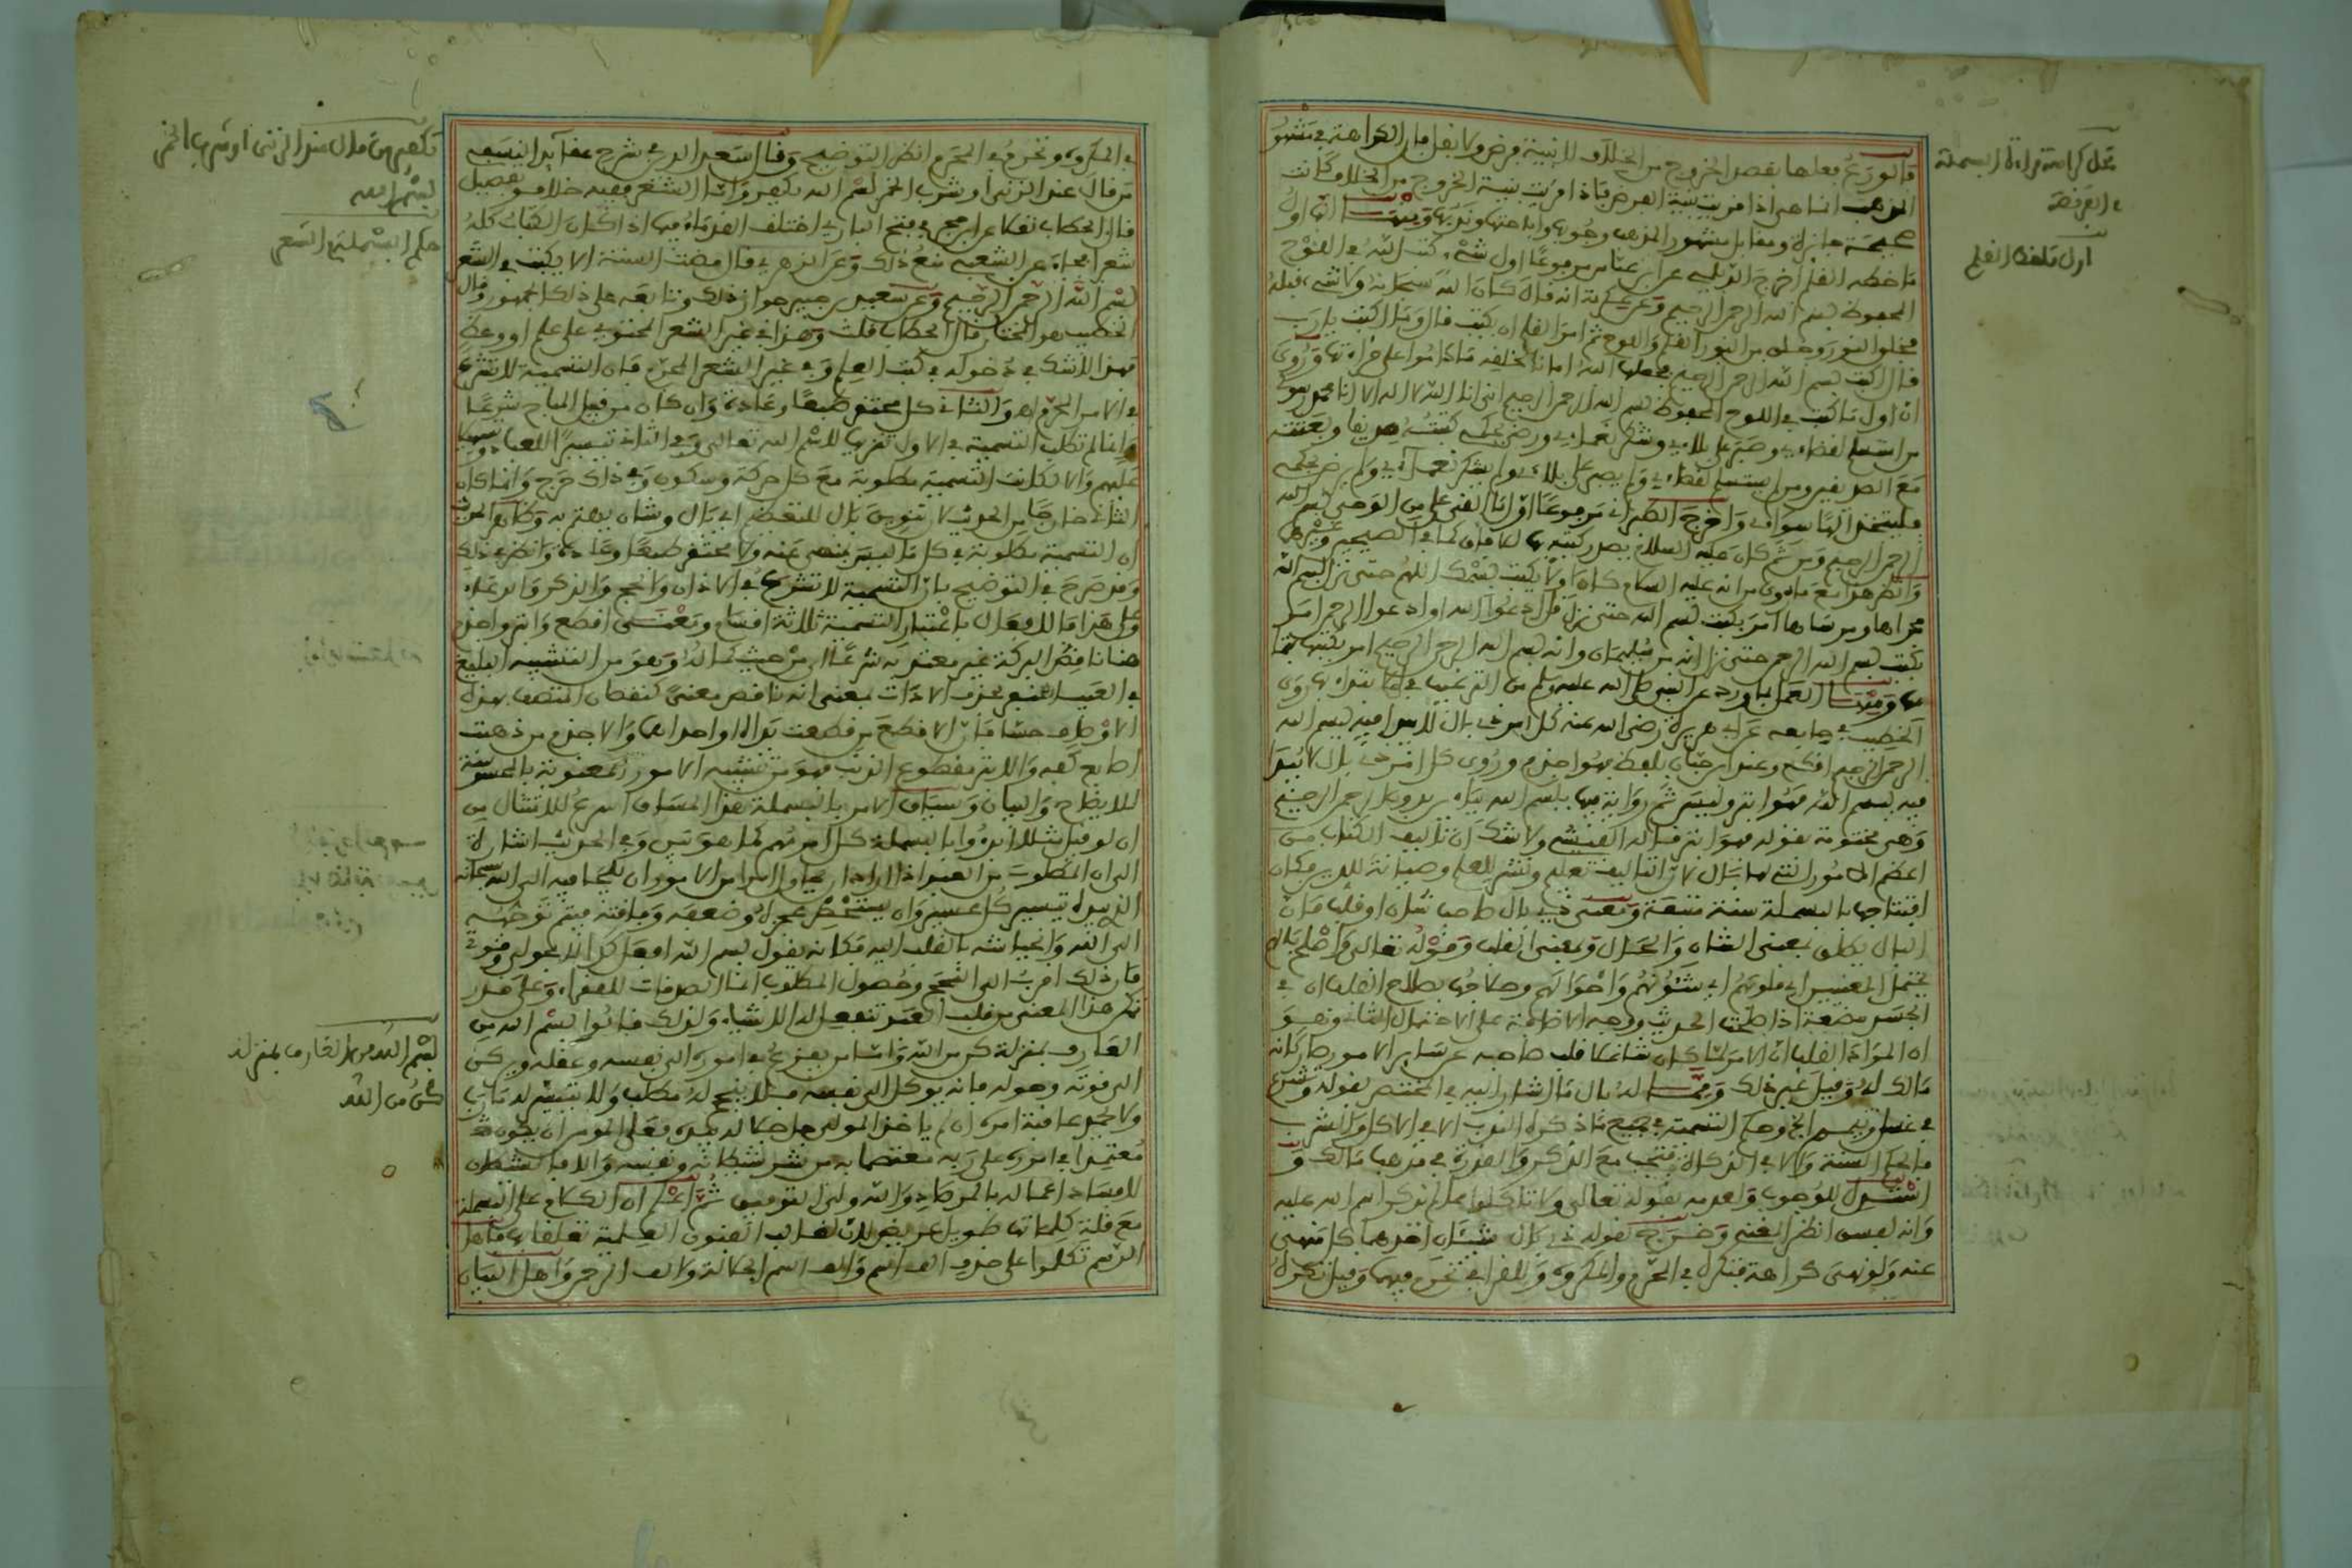 فالورع فعلها بقصد الخروج من الخلاف لا بنية فرض ولا نفل فان الكراهة في مشهور
المذهب انما هي اذا قريت بنية الفرض فاذا قريت بنية الخروج من الخلاف كانت
صحيحة جائزة ومقابل مشهور المذهب وجوبها واباحتها وندبها ومنها انها اول
ما خطه القلم اخرج الديلمي عن ابن عباس مرفوعا اول شيء كتب الله في اللوح
المحفوظ بسم الله الرحمن الرحيم وعن عكرمة انه قال كان الله سبحانه ولا شيء قبله
فخلق النور وخلق من النور القلم واللوح ثم امر القلم ان يكتب قال وما اكتب يا رب
قال اكتب بسم الله الرحمن الرحيم فجعلها الله امانا لخلقه ما داموا على قراءتها وروي
ان اول ما كتب في اللوح المحفوظ بسم الله الرحمن الرحيم انني انا الله لا اله الا انا محمد رسولي
من استسلم لقضاءي وصبر على بلاءي وشكر نعماءي ورضي بحكمي كتبته صديقا وبعثته
مع الصديقين ومن لم يستسلم لقضاءي ولم يصبر على بلاءي ولم يشكر نعماءي ولم يرض بحكمي
فليتخذ الها سواي واخرج الطبراني مرفوعا اول ما القي علي من الوحي بسم الله
الرحمن الرحيم ومن ثم كان عليه السلام يصدر كتبه بها لما في الصحيح وغيرها
وانظر هذا مع ما روي من انه عليه السلام كان اولا يكتب بسمك اللهم حتى نزل بسم الله
مجراها ومرساها امر بكتب بسم الله حتى نزل قل ادعوا الله او ادعوا الرحمن امر
بكتب بسم الله الرحمن حتى نزل انه من سليمان وانه بسم الله الرحمن الرحيم امر بكتبها
ومنها العمل بما ورد عن النبي صلى الله عليه وسلم من الترغيب في الابتداء بها روى
الخطيب في جامعه عن ابي هريرة رضي الله عنه كل امر ذي بال لا يبدا فيه بسم الله
الرحمن الرحيم اقطع وعند ابن حبان بلفظ فهو اجذم وروي كل امر ذي بال لا يبدا
فيه بسم الله فهو ابتر وليس ثم رواية فيها ببسم الله بباء بدون الرحمن الرحيم
وهي مختومة بقوله فهو ابتر قاله الفيشي ولا شك ان تاليف الكتاب من
اعظم الامور التي لها بال لان التاليف تعلم ونشر للعلم وصيانة للدين فكان
افتتاحها بالبسملة سنة متبعة ومعنى ذي بال صاحب شان او قلب فان
البال يطلق بمعنى الشان والحال وبمعنى القلب وقوله تعالى واصلح بالهم
يحتمل المعنيين اي قلوبهم اي شئونهم واحوالهم وصلاحها بصلاح القلب ان في
الجسد مضغة اذا صلحت الحديث ووجه الاضافة على الاحتمال الثاني وهو
ان المراد القلب ان الامر لما كان شاغلا قلب صاحبه عن ساير الامور صار كانه
مالك له وقيل غير ذلك ومما له بال ما اشار اليه في المختصر بقوله وتشرع
في غسل وتيمم الخ وحكم التسمية في جميع ما ذكره الندب الا في الاكل والشرب
فالحكم السنة والا في الذكاة فتجب مع الذكر والقدرة في مذهب مالك و
استدل للوجوب ولعدمه بقوله تعالى ولا تاكلوا مما لم يذكر اسم الله عليه
وانه لفسق انظر الغنيمي وخرج بقوله ذي بال شيئان احدهما كل منهي
عنه ولو نهي كراهة فتكره في المحرم والمكروه وللقرافي تحرم فيهما وقيل تكره
محل كراهة قراءة البسملة
في الفريضة
اول ما خط القلم
في المكروه وتحرم في المحرم انظر التوضيح وقال السعد في شرح عقائد النسفي
من قال عند الزنى او شرب الخمر بسم الله يكفر واما الشعر ففيه خلاف وتفصيل
قال الحطاب نقلا عن ابن حجر في فتح الباري اختلف القدماء فيما اذا كان الكتاب كله
شعرا فجاء عن الشعبي منع ذلك وعن الزهري قال مضت السنة الا يكتب في الشعر
بسم الله الرحمن الرحيم وعن سعيد بن جبير جواز ذلك وتابعه على ذلك الجمهور وقال
الخطيب هو المختار قال الحطاب قلت وهذا في غير الشعر المحتوي على علم او وعظ
فهذا لا شك في دخوله في كتب العلم وفي غير الشعر المحرم فان التسمية لا تشرع
في الامر المحرم والثاني كل محتقر طبعا وعادة وان كان من قبيل المباح شرعا
وانما لم تطلب التسمية في الاول تنزيها لاسم الله تعالى وفي الثاني تيسيرا للعباد
عليهم والا لكانت التسمية مطلوبة مع كل حركة وسكون وفي ذلك حرج وانما كان
الثاني خارجا من الحديث لان تنوين بال للتعظيم اي بال وشان يهتم به
ان التسمية مطلوبة في كل ما ليس بمنهي عنه ولا محتقر طبعا وعادة وانظر ذلك
وقد صرح في التوضيح بان التسمية لا تشرع في الاذان والحج والذكر والدعاء
وعلى هذا فالافعال باعتبار التسمية ثلاثة اقسام ومعنى اقطع وابتر واجذم
هنا ناقص البركة غير معتد به شرعا من حيث كماله وهو من التشبيه البليغ
في العيب المنفر بحذف الاداة بمعنى انه ناقص معنى كنقصان المتصف بهذه
الاوصاف حسا فان الاقطع من قطعت يداه او احداهما والاجذم من ذهبت
اصابع كفيه والابتر مقطوع الذنب فهو من تشبيه الامور المعنوية بالمحسوسة
للايضاح والبيان وسياق الامر بالبسملة هذا المساق اسرع للامتثال من
ان لو قيل مثلا ابدؤوا بالبسملة كل امر مهم كما هو بين وفي الحديث اشارة
الى ان المطلوب من العبد اذا اراد ان يحاول امرا من الامور ان يلتجا فيه الى الله سبحانه
الذي بيده تيسير كل عسير وان يستحضر عجزه وضعفه وفاقته فيتم توجهه
الى الله وانحياشه بالقلب اليه فكانه يقول بسم الله افعل كذا لا بحولي وقوتي
فان ذلك اقرب الى النجح وحصول المطلوب انما الصدقات للفقراء وعلى قدر
تمكن هذا المعنى من قلب العبد تنفعل له الاشياء ولذلك قالوا بسم الله من
العارف بمنزلة كن من الله واما من يفزع في اموره الى نفسه وعقله ويركن
الى قوته وحوله فانه يوكل الى نفسه فلا ينجح له مطلب ولا تتيسر له مارب
ولا تحمد عاقبة امره ان لم ياخذ المولى جل جلاله بيده فعلى المومن ان يكون
معتمدا في اموره على ربه معتصما به من شر شيطانه ونفسه والا فالشيطان
لافساد اعماله بالمرصاد والله ولي التوفيق ثم اعلم ان الكلام على البسملة
مع قلة كلماتها طويل عريض لان لغالب الفنون العلمية تعلقا بها فاهل
الرسم تكلموا على حذف الف اسم والف اسم الجلالة والف الرحمن واهل البيان
تكفير من قال عند الزنى او شرب الخمر
بسم الله
حكم البسملة في الشعر
بسم الله من العارف بمنزلة
كن من الله